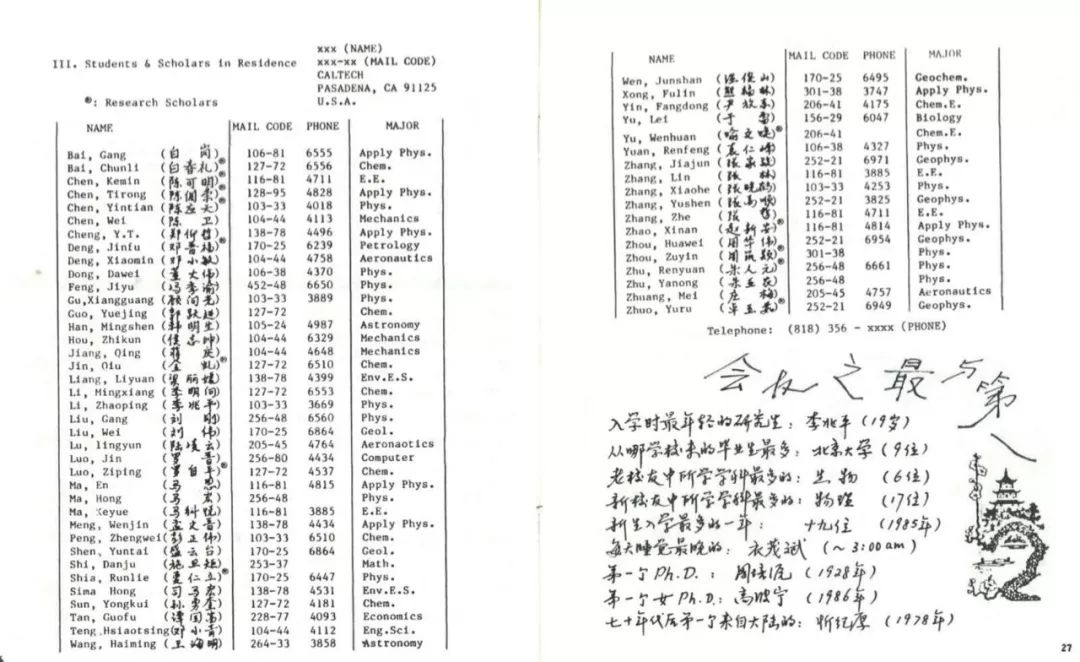 III. Students & Scholars in Residence
xxx (NAME)
xxx-xx (MAIL CODE)
CALTECH
PASADENA, CA 91125
U.S.A.
®: Research Scholars
NAME MAIL CODE PHONE MAJOR
Bai, Gang (白 岗) 106-81 6555 Apply Phys.
Bai, Chunli (白春礼)® 127-72 6556 Chem.
Chen, Kemin (陈可明) 116-81 4711 E.E.
Chen, Tirong 128-95 4828 Apply Phys.
Chen, Yintian 103-33 4018 Phys.
Chen, Wei (陈 卫) 104-44 4113 Mechanics
Cheng, Y.T. (郑仰哲) 138-78 4496 Apply Phys.
Deng, Jinfu (邓晋福)® 170-25 6239 Petrology
Deng, Xiaomin (邓小敏) 104-44 4758 Aeronautics
Dong, Dawei (董大伟) 106-38 4370 Phys.
Feng, Jiyu (冯季渝) 452-48 6650 Phys.
Gu,Xiangguang (顾向光) 103-33 3889 Phys.
Guo, Yuejing 127-72 Chem.
Han, Mingshen (韩明生) 105-24 4987 Astronomy
Hou, Zhikun (侯志坤) 104-44 6329 Mechanics
Jiang, Qing (蒋 庆) 104-44 4648 Mechanics
Jin, Qiu 127-72 6510 Chem.
Liang, Liyuan (梁丽媛) 138-78 4399 Env.E.S.
Li, Mingxiang (李明向) 127-72 6553 Chem.
Li, Zhaoping (李兆平) 103-33 3669 Phys.
Liu, Gang (刘 刚) 256-48 6560 Phys.
Liu, Wei (刘 伟) 170-25 6864 Geol.
Lu, lingyun (陆凌云) 205-45 4764 Aeronaotics
Luo, Jin (罗 晋) 256-80 4434 Computer
Luo, Ziping (罗自平)® 127-72 4537 Chem.
Ma, En (马 恩) 116-81 4815 Apply Phys.
Ma, Hong (马 宏) 256-48 Phys.
Ma, Keyue 116-81 3885 E.E.
Meng, Wenjin (孟文晋) 138-78 4434 Apply Phys.
Peng, Zhengwei(彭正伟) 103-33 6510 Chem.
Shen, Yuntai (盛云台) 170-25 6864 Geol.
Shi, Danju (施旦矩) 253-37 Math.
Shia, Runlie (夏仁立)® 170-25 6447 Phys.
Sima Hong (司马宏) 138-78 4531 Env.E.S.
Sun, Yongkui (孙勇奎) 127-72 4181 Chem.
Tan, Guofu (谭国富) 228-77 4093 Economics
Teng,Hsiaotsing(邓小青) 104-44 4112 Eng.Sci.
Wang, Haiming (王海明) 264-33 3858 Astronomy
NAME MAIL CODE PHONE MAJOR
Wen, Junshan (温俊山) 170-25 6495 Geochem.
Xong, Fulin (熊福林) 301-38 3747 Apply Phys.
Yin, Fangdong (尹放东) 206-41 4175 Chem.E.
Yu, Lei (于 雷) 156-29 6047 Biology
Yu, Wenhuan 206-41 Chem.E.
Yuan, Renfeng (袁仁峰) 106-38 4327 Phys.
Zhang, Jiajun 252-21 6971 Geophys.
Zhang, Lin (张 林) 116-81 3885 E.E.
Zhang, Xiaohe (张晓鹤) 103-33 4253 Phys.
Zhang, Yushen 252-21 3825 Geophys.
Zhang, Zhe (张 哲) 116-81 4711 E.E.
Zhao, Xinan (赵新安)® 116-81 4814 Apply Phys.
Zhou, Huawei (周华伟) 252-21 6954 Geophys.
Zhou, Zuyin 301-38 Phys.
Zhu, Renyuan (朱人元) 256-48 6661 Phys.
Zhu, Yanong 256-48 Phys.
Zhuang, Mei (庄 梅) 205-45 4757 Aeronautics
Zhuo, Yuru 252-21 6949 Geophys.
Telephone: (818) 356 - xxxx (PHONE)
会友之最与第一
入学时最年轻的研究生: 李兆平 (19岁)
从哪学校来的毕业生最多: 北京大学 (9位)
老校友中所学学科最多的: 生物 (6位)
新校友中所学学科最多的: 物理 (17位)
新生入学最多的一年: 十九位 (1985年)
每天睡觉最晚的: 衣茂斌 (~3:00am)
第一个Ph.D.: 周培源 (1928年)
第一个女Ph.D.: 高晓宁 (1986年)
七十年代后第一个来自大陆的: 忻纪厚 (1978年)
27